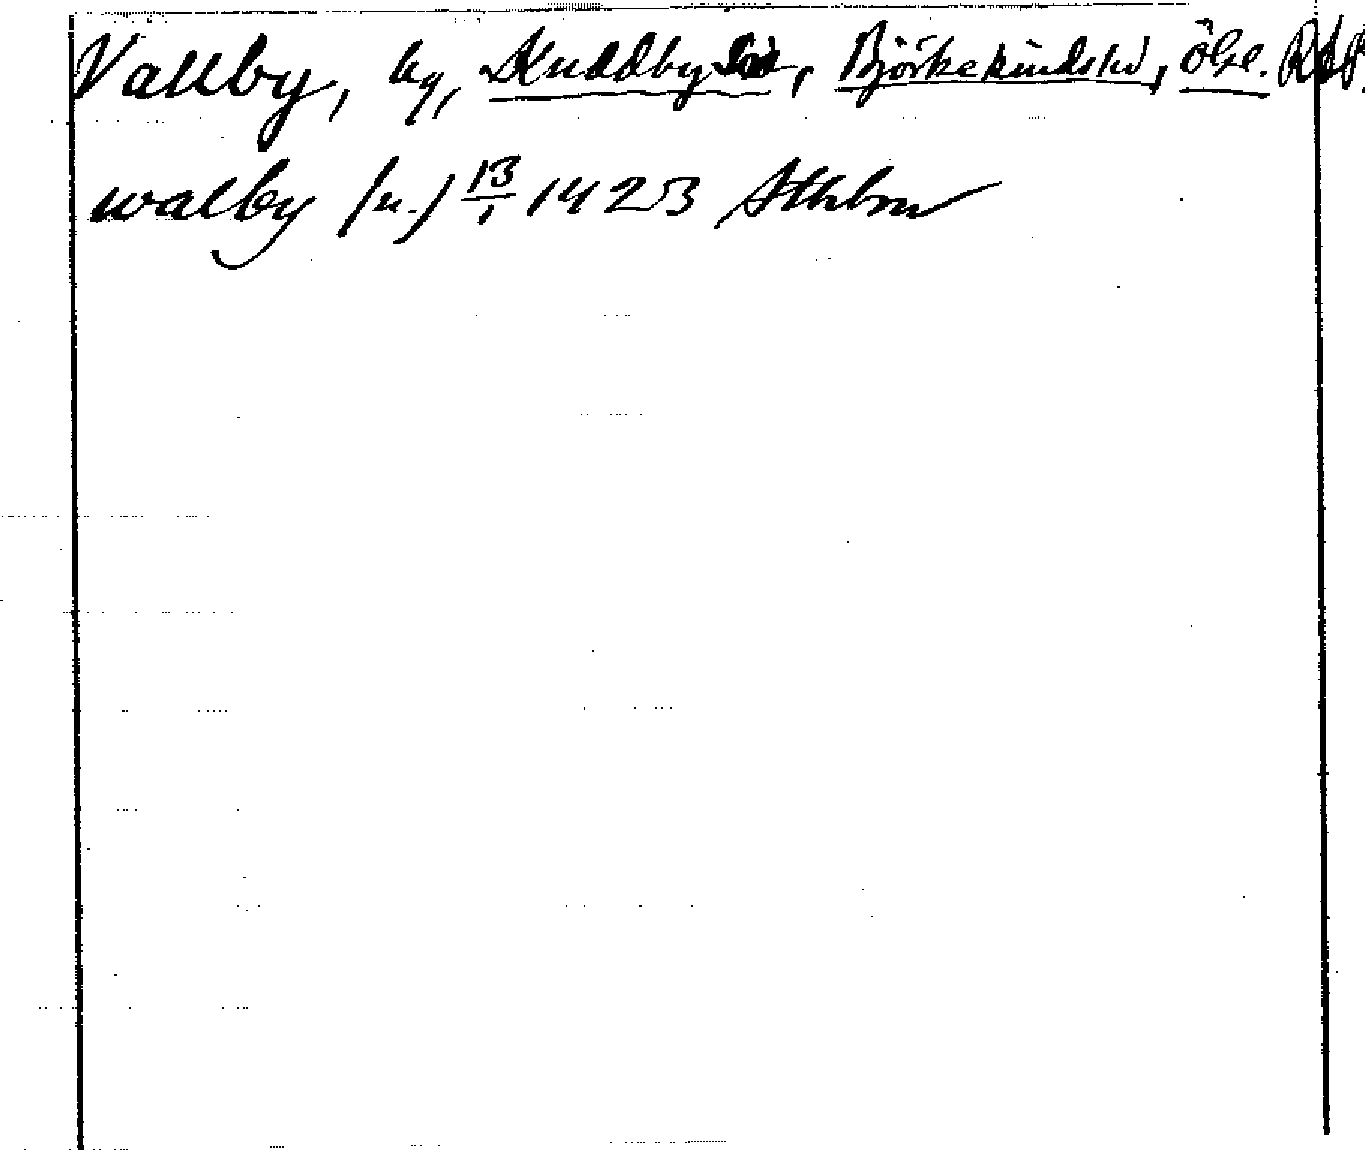 Vallby, by, Kuddby sn, Björkekinds hd, ölse. RAP.
walby (u.) 13/1 1423 Sthbm